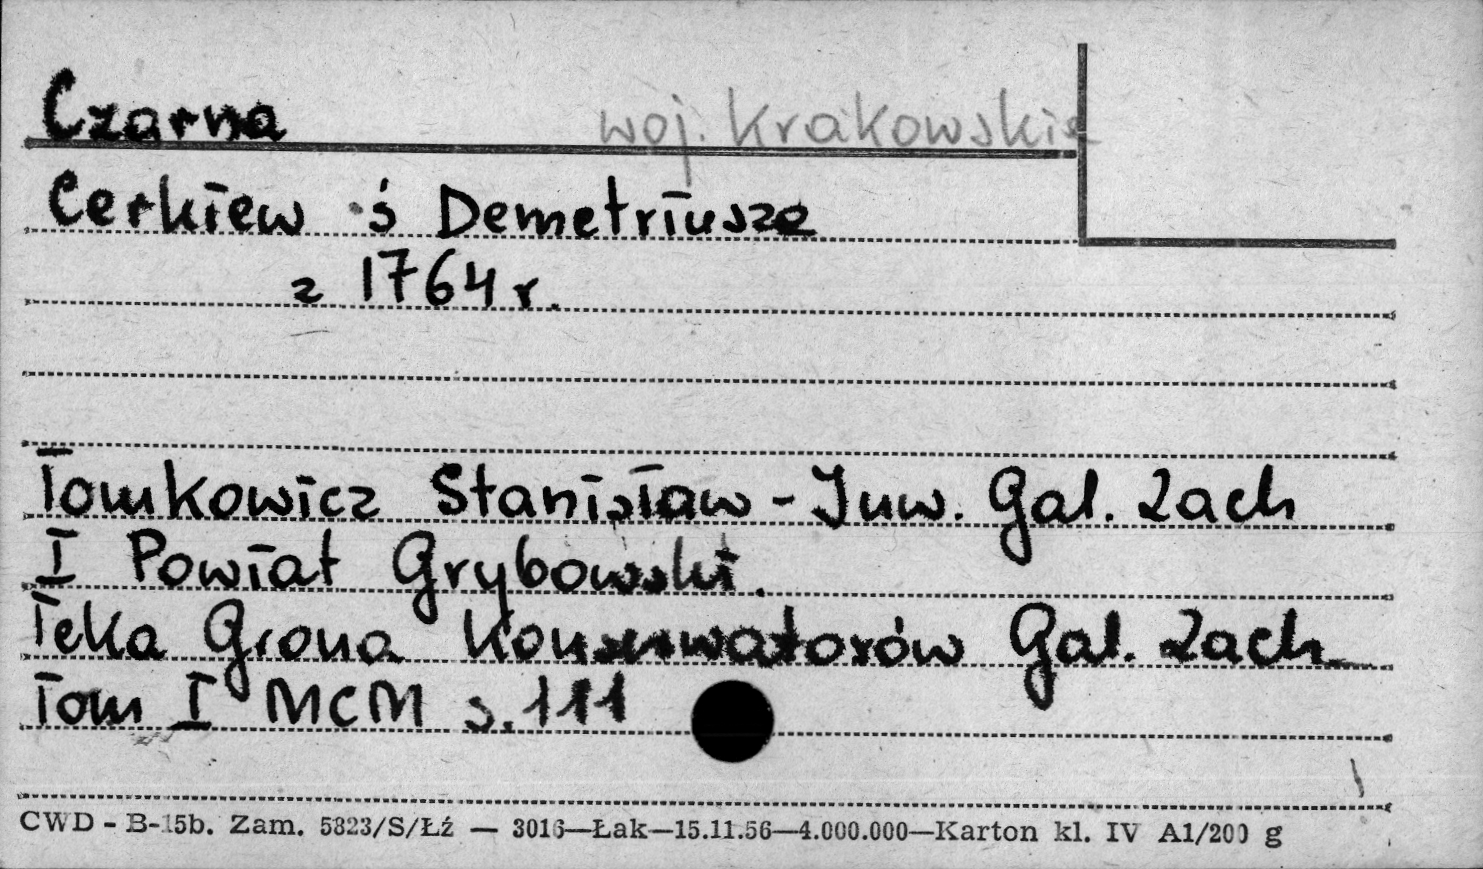 Czarna woj. Krakowskie
Cerkiew ś Demetriusza
z 1764 r.
Tomkowicz Stanisław - Inw. Gal. Zach
I Powiat Grybowski.
Teka Grona Konserwatorów Gal. Zach.
Tom I MCM s. 111
CWD - B-15b. Zam. 5823/S/Łź — 3016—Łak—15.11.56—4.000.000—Karton kl. IV A1/200 g